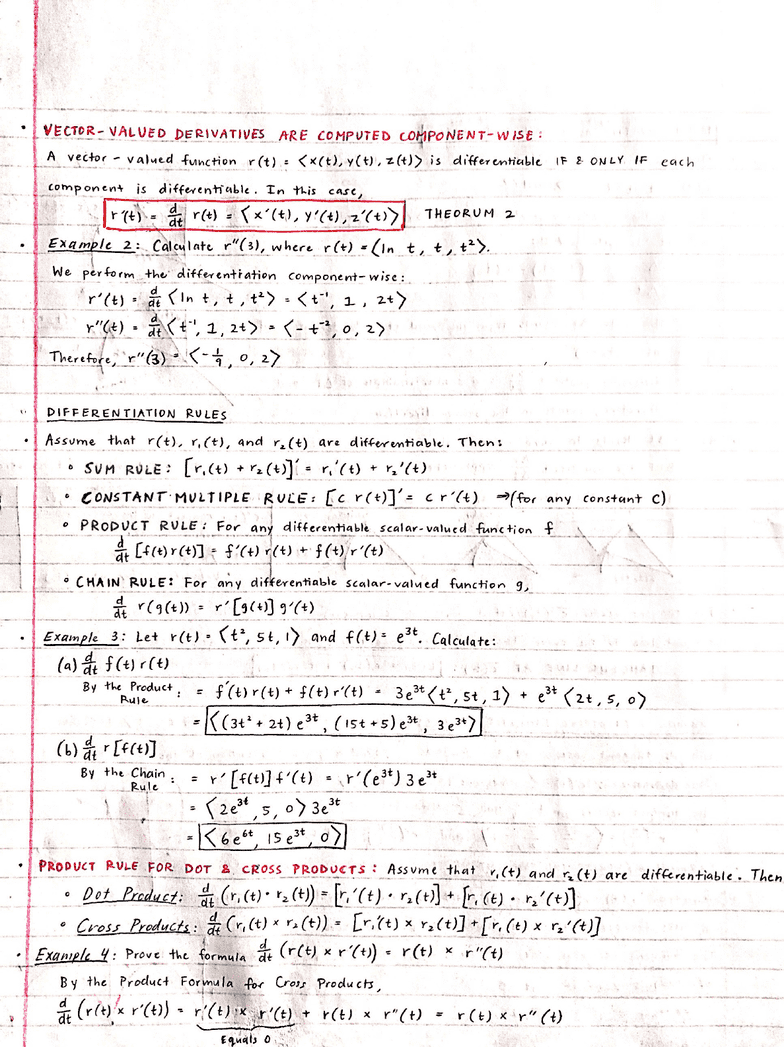 • VECTOR-VALUED DERIVATIVES ARE COMPUTED COMPONENT-WISE:
A vector-valued function r(t) = ⟨x(t), y(t), z(t)⟩ is differentiable IF & ONLY IF each
component is differentiable. In this case,
r'(t) = d/dt r(t) = ⟨x'(t), y'(t), z'(t)⟩ THEORUM 2
• Example 2: Calculate r''(3), where r(t) = ⟨ln t, t, t²⟩.
We perform the differentiation component-wise:
r'(t) = d/dt ⟨ln t, t, t²⟩ = ⟨t⁻¹, 1, 2t⟩
r''(t) = d/dt ⟨t⁻¹, 1, 2t⟩ = ⟨-t⁻², 0, 2⟩
Therefore, r''(3) = ⟨-1/9, 0, 2⟩
DIFFERENTIATION RULES
• Assume that r(t), r₁(t), and r₂(t) are differentiable. Then:
• SUM RULE: [r₁(t) + r₂(t)]' = r₁'(t) + r₂'(t)
• CONSTANT MULTIPLE RULE: [c r(t)]' = c r'(t) ⇒(for any constant c)
• PRODUCT RULE: For any differentiable scalar-valued function f
d/dt [f(t)r(t)] = f'(t)r(t) + f(t)r'(t)
• CHAIN RULE: For any differentiable scalar-valued function g,
d/dt r(g(t)) = r'[g(t)] g'(t)
• Example 3: Let r(t) = ⟨t², 5t, 1⟩ and f(t) = e³ᵗ. Calculate:
(a) d/dt f(t)r(t)
By the Product Rule: = f'(t)r(t) + f(t)r'(t) = 3e³ᵗ⟨t², 5t, 1⟩ + e³ᵗ⟨2t, 5, 0⟩
= ⟨(3t² + 2t)e³ᵗ, (15t + 5)e³ᵗ, 3e³ᵗ⟩
(b) d/dt r[f(t)]
By the Chain Rule: = r'[f(t)]f'(t) = r'(e³ᵗ)3e³ᵗ
= ⟨2e³ᵗ, 5, 0⟩3e³ᵗ
= ⟨6e⁶ᵗ, 15e³ᵗ, 0⟩
• PRODUCT RULE FOR DOT & CROSS PRODUCTS: Assume that r₁(t) and r₂(t) are differentiable. Then
• Dot Product: d/dt (r₁(t) · r₂(t)) = [r₁'(t) · r₂(t)] + [r₁(t) · r₂'(t)]
• Cross Products: d/dt (r₁(t) × r₂(t)) = [r₁'(t) × r₂(t)] + [r₁(t) × r₂'(t)]
• Example 4: Prove the formula d/dt (r(t) × r'(t)) = r(t) × r''(t)
By the Product Formula for Cross Products,
d/dt (r(t) × r'(t)) = r'(t) × r'(t) + r(t) × r''(t) = r(t) × r''(t)
Equals 0